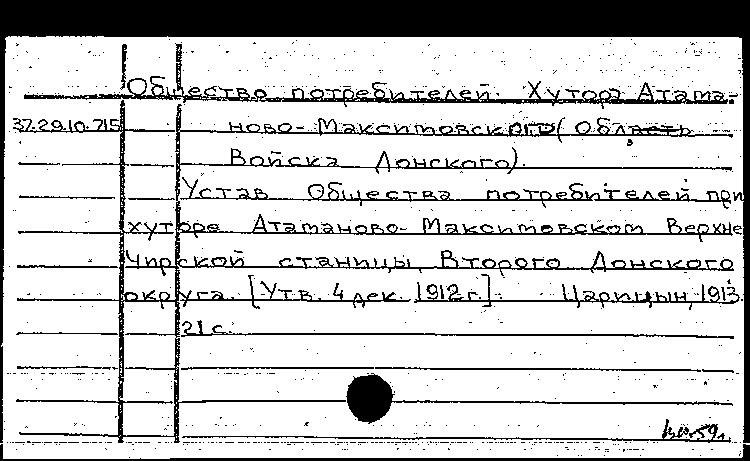 Общество потребителей. Хутора Атама-
37.29.10.715 ново-Максимовского (Область
Войска Донского).
Устав Общества потребителей при
хуторе Атаманово-Максимовском Верхне
Чирской станицы, Второго Донского
округа. [Утв. 4 дек. 1912 г.]. Царицын, 1913.
21 с.